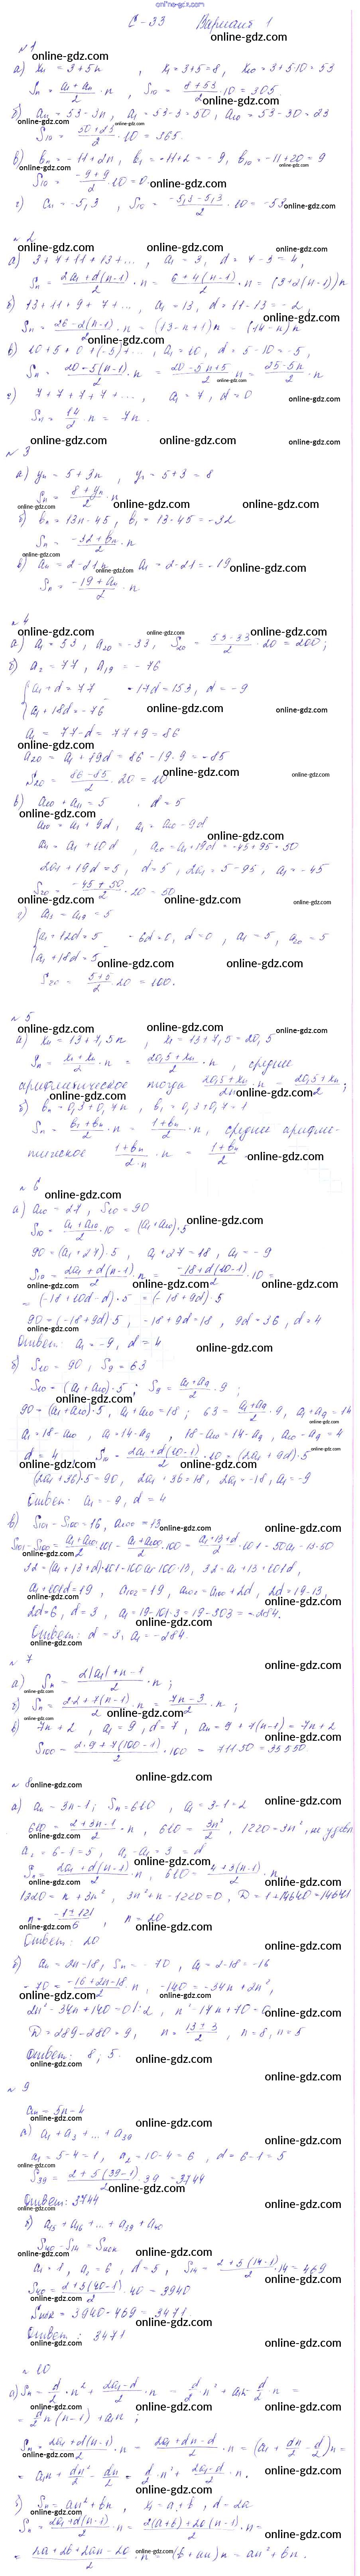 С-33 Вариант 1
№1
а) xn = 3+5n, x1 = 3+5=8, x10 = 3+5·10 = 53
Sn = (a1+an)/2 · n, S10 = (8+53)/2 · 10 = 305.
б) an = 53-3n, a1 = 53-3 = 50, a10 = 53-30 = 23
S10 = (50+23)/2 · 10 = 365.
в) bn = -11+2n, b1 = -11+2 = -9, b10 = -11+20 = 9
S10 = (-9+9)/2 · 10 = 0
г) cn = -5,3, S10 = (-5,3-5,3)/2 · 10 = -53
№2
а) 3+7+11+13+..., a1 = 3, d = 7-3 = 4,
Sn = (2a1+d(n-1))/2 · n = (6+4(n-1))/2 · n = (3+2(n-1))n
б) 13+11+9+7+..., a1 = 13, d = 11-13 = -2,
Sn = (26-2(n-1))/2 · n = (13-n+1)n = (14-n)n
в) 10+5+0+(-5)+..., a1 = 10, d = 5-10 = -5,
Sn = (20-5(n-1))/2 · n = (20-5n+5)/2 · n = (25-5n)/2 · n
г) 7+7+7+7+..., a1 = 7, d = 0
Sn = 14/2 · n = 7n.
№3
а) yn = 5+3n, y1 = 5+3 = 8
Sn = (8+yn)/2 · n
б) bn = 13n-45, b1 = 13-45 = -32
Sn = (-32+bn)/2 · n
в) an = 2-21n, a1 = 2-21 = -19
Sn = (-19+an)/2 · n
№4
а) a1 = 53, a20 = -33, S20 = (53-33)/2 · 20 = 200;
б) a2 = 77, a19 = -76
a1+d = 77 -17d = 153, d = -9
a1+18d = -76
a1 = 77-d = 77+9 = 86
a20 = a1+19d = 86-19·9 = -85
S20 = (86-85)/2 · 20 = 10
в) a10+a11 = 5, d = 5
a10 = a1+9d, a1 = a10-9d
a11 = a1+10d, a20 = a1+19d = -45+95 = 50
2a1+19d = 5, d = 5, 2a1 = 5-95, a1 = -45
S20 = (-45+50)/2 · 20 = 50
a1+12d = 5 -6d = 0, d = 0, a1 = 5, a20 = 5
a1+18d = 5
S20 = (5+5)/2 · 20 = 100.
№5
а) xn = 13+7,5n, x1 = 13+7,5 = 20,5
Sn = (x1+xn)/2 · n = (20,5+xn)/2 · n, среднее
арифметическое тогда (20,5+xn)/2n · n = (20,5+xn)/2;
б) bn = 0,3+0,7n, b1 = 0,3+0,7 = 1
Sn = (b1+bn)/2 · n = (1+bn)/2 · n, среднее арифме-
тическое (1+bn)/(2·n) · n = (1+bn)/2
№6
а) a10 = 27, S10 = 90
S10 = (a1+a10)/2 · 10 = (a1+a10)·5
90 = (a1+27)·5, a1+27 = 18, a1 = -9
S10 = (2a1+d(n-1))/2 · n = (-18+d(10-1))/2 · 10 =
= (-18+10d-d)·5 = (-18+9d)·5
90 = (-18+9d)5, -18+9d = 18, 9d = 36, d = 4
Ответ: a1 = -9, d = 4
б) S10 = 90, S9 = 63
S10 = (a1+a10)·5; S9 = (a1+a9)/2 · 9;
90 = (a1+a10)·5, a1+a10 = 18; 63 = (a1+a9)/2 · 9, a1+a9 = 14
a1 = 18-a10, a1 = 14-a9, 18-a10 = 14-a9, a10-a9 = 4
d = 4, S10 = (2a1+d(10-1))/2 · 10 = (2a1+9d)·5
(2a1+36)·5 = 90, 2a1+36 = 18, 2a1 = -18, a1 = -9
Ответ: a1 = -9, d = 4
в) S101-S100 = 16, a100 = 13
a1+101d = 19, a102 = 19, a102 = a100+2d, 2d = 19-13,
2d = 6, d = 3, a1 = 19-101·3 = 19-303 = -284.
Ответ: d = 3, a1 = -284.
№7
а) Sn = (2|a1|+n-1)/2 · n;
б) Sn = (2·2+7(n-1))/2 · n = (7n-3)/2 · n;
в) 7n+2, a1 = 9, d = 7, an = 9+7(n-1) = 7n+2
S100 = (2·9+7(100-1))/2 · 100 = 35550
№8
а) an = 3n-1; Sn = 610, a1 = 3-1 = 2
610 = (2+3n-1)/2 · n, 610 = 3n²/2, 1220 = 3n², не удовл.
a2 = 6-1 = 5, a2-a1 = 3 = d
Sn = (2a1+d(n-1))/2 · n, 610 = (4+3(n-1))/2 · n,
1220 = n+3n², 3n²+n-1220 = 0, D = 1+14640 = 14641
n = (-1±121)/6, n = 20
Ответ: 20
б) an = 2n-18, Sn = -70, a1 = 2-18 = -16
-70 = (-16+2n-18)/2 · n, -140 = -34n+2n²,
2n²-34n+140 = 0 |:2, n²-17n+70 = 0
D = 289-280 = 9, n = (17±3)/2, n = 8, n = 5
Ответ: 8, 5.
№9
an = 5n-4
а) a1+a2+...+a39
a1 = 5-4 = 1, a2 = 10-4 = 6, d = 6-1 = 5
S39 = (2+5(39-1))/2 · 39 = 3744
Ответ: 3744
б) a15+a16+...+a39+a40
S40-S14 = Sиск
a1 = 1, a2 = 6, d = 5, S14 = (2+5(14-1))/2 · 14 = 469
S40 = (2+5(40-1))/2 · 40 = 3940
Sиск = 3940-469 = 3471
Ответ: 3471
№10
а) Sn = d/2 · n² + (2a1-d)/2 · n = d/2 · n² + a1n - d/2 · n =
= d/2 n(n-1) + a1n;
Sn = (2a1+d(n-1))/2 · n = (2a1+dn-d)/2 · n = (a1 + dn/2 - d/2)n =
= a1n + dn²/2 - dn/2 = d/2 · n² + (2a1-d)/2 · n.
б) Sn = an²+bn, x1 = a+b, d = 2a
Sn = (2a1+d(n-1))/2 · n = (2(a+b)+2a(n-1))/2 · n =
= (2a+2b+2an-2a)/2 · n = (b+an)n = an²+bn.
online-gdz.com